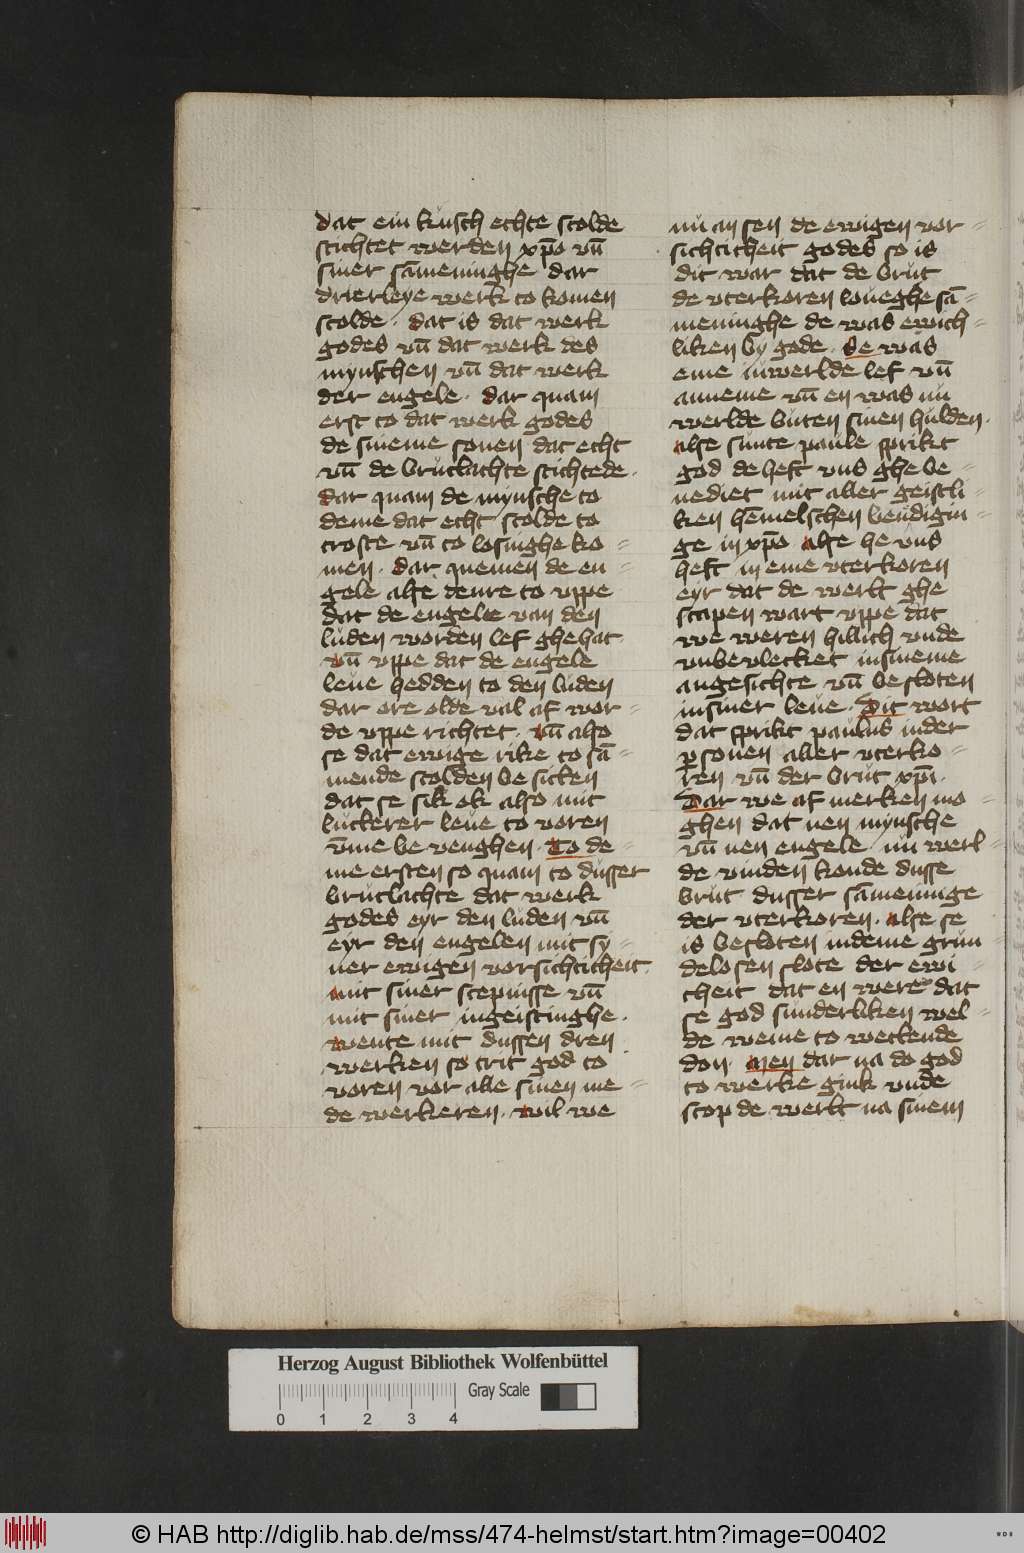 dat ein kusch echte scolde
stichtet werden xp̄o vn̄
siner sāmeninghe dar
drierleye werk to komen
scolde · dat is dat werk
godes vn̄ dat werk des
mynschen vn̄ dat werk
der engele · dar quam
erst to dat werk godes
de sineme sonen dat echt
vn̄ de brutlachte stichtede ·
dar quam de mynsche to
deme dat echt scolde to
troste vn̄ to losinghe ko=
men · dar quemen de en=
gele alse denre to vppe
dat de engele van den
luden worden lef ghehat
vn̄ vppe dat de engele
leue hedden to den luden
dar ore olde val af wor=
de vppe richtet · vn̄ also
se dat ewige rike to sā=
mende scolden be sitten
dat se sik ok also mit
luckerer leue to voren
v̄me be venghen · To de=
me ersten so quam to dusser
brutlachte dat werk
godes eyr den luden vn̄
eyr den engelen mit sy=
ner ewigen vorsichticheit
mit siner scepnisse vn̄
mit siner ingeistinghe ·
wente mit dussen dren
werken so trit god to
voren vor alle sinen me=
de werkeren · wil we
nu an sen de ewigen vor=
sichticheit godes so is
dit war dat de brut
de vterkoren loueghe sā=
meninghe de was ewich=
liken by gode · Se was
eme inwerlde lef vn̄
anneme vn̄ en was nu
werlde buten sinen hulden ·
alse sunte paule sprikt
god de heft vns ghe be=
nediet mit aller geistli=
ken hēmelschen benidigin=
ge in xp̄o alse he vns
heft in eme vterkoren
eyr dat de werlt ghe
scapen wart vppe dat
we weren hillich vnde
vnbevlecket insineme
angesichte vn̄ besloten
insiner leue · Dit wort
dat sprikt paulus inder
p̱sonen aller vterko=
ren vn̄ der brut xp̄i ·
Dar we af merken mo=
ghen dat nen mynsche
vn̄ nen engele nu werl=
de vinden konde dusse
brut dusser sāmeninge
der vterkoren · alse se
is besloten indeme grun=
delosen slote der ewi=
cheit dat en were dat
se god sunderliken wel=
de weme to weckende
don · Men dar na do god
to werke gink vnde
scop de werlt na sinem
Herzog August Bibliothek Wolfenbüttel
0 1 2 3 4 Gray Scale
© HAB http://diglib.hab.de/mss/474-helmst/start.htm?image=00402